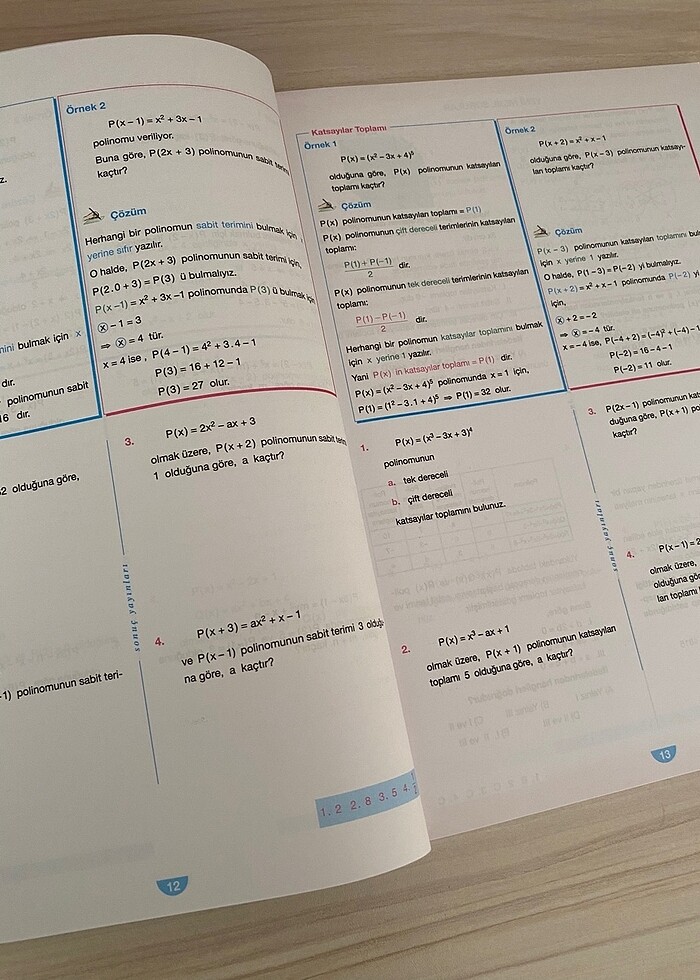 z.
mini bulmak için x
dir.
polinomunun sabit
6 dır.
2 olduğuna göre,
-1) polinomunun sabit teri-
Örnek 2
P(x – 1) = x² + 3x – 1
polinomu veriliyor.
Buna göre, P(2x + 3) polinomunun sabit terimi
kaçtır?
Çözüm
Herhangi bir polinomun sabit terimini bulmak için
yerine sıfır yazılır.
O halde, P(2x + 3) polinomunun sabit terimi için,
P(2.0 + 3) = P(3) ü bulmalıyız.
P(x–1) = x² + 3x –1 polinomunda P(3) ü bulmak için
x – 1 = 3
⇒ x = 4 tür.
x = 4 ise, P(4 – 1) = 4² + 3.4 – 1
P(3) = 16 + 12 – 1
P(3) = 27 olur.
3.
P(x) = 2x² – ax + 3
olmak üzere, P(x + 2) polinomunun sabit terimi
1 olduğuna göre, a kaçtır?
sonuç yayınları
4.
P(x + 3) = ax² + x – 1
ve P(x – 1) polinomunun sabit terimi 3 olduğu
na göre, a kaçtır?
1. 2 2. 8 3. 5 4.
12
Katsayılar Toplamı
Örnek 1
P(x) = (x² – 3x + 4)⁵
olduğuna göre, P(x) polinomunun katsayıları
toplamı kaçtır?
Çözüm
P(x) polinomunun katsayıları toplamı = P(1)
P(x) polinomunun çift dereceli terimlerinin katsayıları
toplamı:
P(1) + P(–1)
2
dir.
P(x) polinomunun tek dereceli terimlerinin katsayıları
toplamı:
P(1) – P(–1)
2
dir.
Herhangi bir polinomun katsayılar toplamını bulmak
için x yerine 1 yazılır.
Yani P(x) in katsayılar toplamı = P(1) dir.
P(x) = (x² – 3x + 4)⁵ polinomunda x = 1 için,
P(1) = (1² – 3.1 + 4)⁵ ⇒ P(1) = 32 olur.
1.
P(x) = (x³ – 3x + 3)⁴
polinomunun
a. tek dereceli
b. çift dereceli
katsayılar toplamını bulunuz.
2.
P(x) = x³ – ax + 1
olmak üzere, P(x + 1) polinomunun katsayıları
toplamı 5 olduğuna göre, a kaçtır?
Örnek 2
P(x + 2) = x² + x – 1
olduğuna göre, P(x – 3) polinomunun katsayı-
ları toplamı kaçtır?
Çözüm
P(x – 3) polinomunun katsayıları toplamını bul
için x yerine 1 yazılır.
O halde, P(1 – 3) = P(–2) yi bulmalıyız.
P(x + 2) = x² + x – 1 polinomunda P(–2) yi
için,
x + 2 = –2
⇒ x = –4 tür.
x = –4 ise, P(–4 + 2) = (–4)² + (–4) – 1
P(–2) = 16 – 4 – 1
P(–2) = 11 olur.
3.
P(2x – 1) polinomunun kat
duğuna göre, P(x + 1) po
kaçtır?
sonuç yayınları
4.
P(x – 1) = 2
olmak üzere,
olduğuna gö
ları toplamı
13